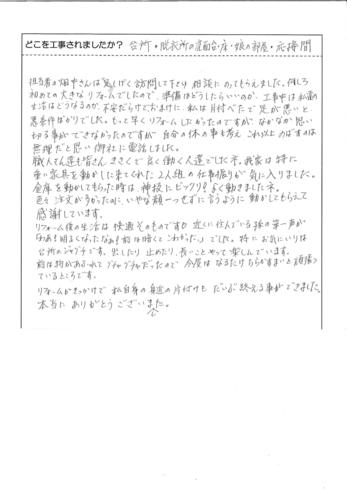 どこを工事されましたか? 台所・脱衣所の洗面台・床・娘の部屋・応接間
担当者の畑中さんは足しげく訪問して下さり相談にのってもらえました。何しろ
初めての大きなリフォームでしたので、準備はどうしたらいいのか、工事中は私達の
生活はどうなるのか、不安だらけでおまけに私は片付べたで足が悪いと
悪条件ばかりでした。もっと早くリフォームしたかったのですが、なかなか思い
切る事ができなかったのですが自分の体の事も考えこれ以上のばすのは
無理だと思い御社に電話しました。
職人さん達も皆さん きさくで良く働く人達でしたネ。我家は特に
重い家具を動かしに来てくれた2人組の仕事振りが気に入りました。
金庫を動かしてもらった時は神技にビックリ!!よく動きましたネ。
色々注文が多かったのに、いやな顔一つせずに言うように動かしてもらえて
感謝しています。
リフォーム後の生活は快適そのものですョ 近くに住んでいる孫の第一声が
「わあも明るくなったなぁ!前は暗くてこわかった。」でした。特にお気にいりは
台所のジャグチです。出したり止めたり、長いことやって楽しんでいます。
前は物があふれてグチャグチャだったので今度はなるたけちらかすまいと頑張っ
ているところです。
リフォームがきっかけで私自身の身辺の片付けもだいぶ終える事ができました。
本当にありがとうございました。